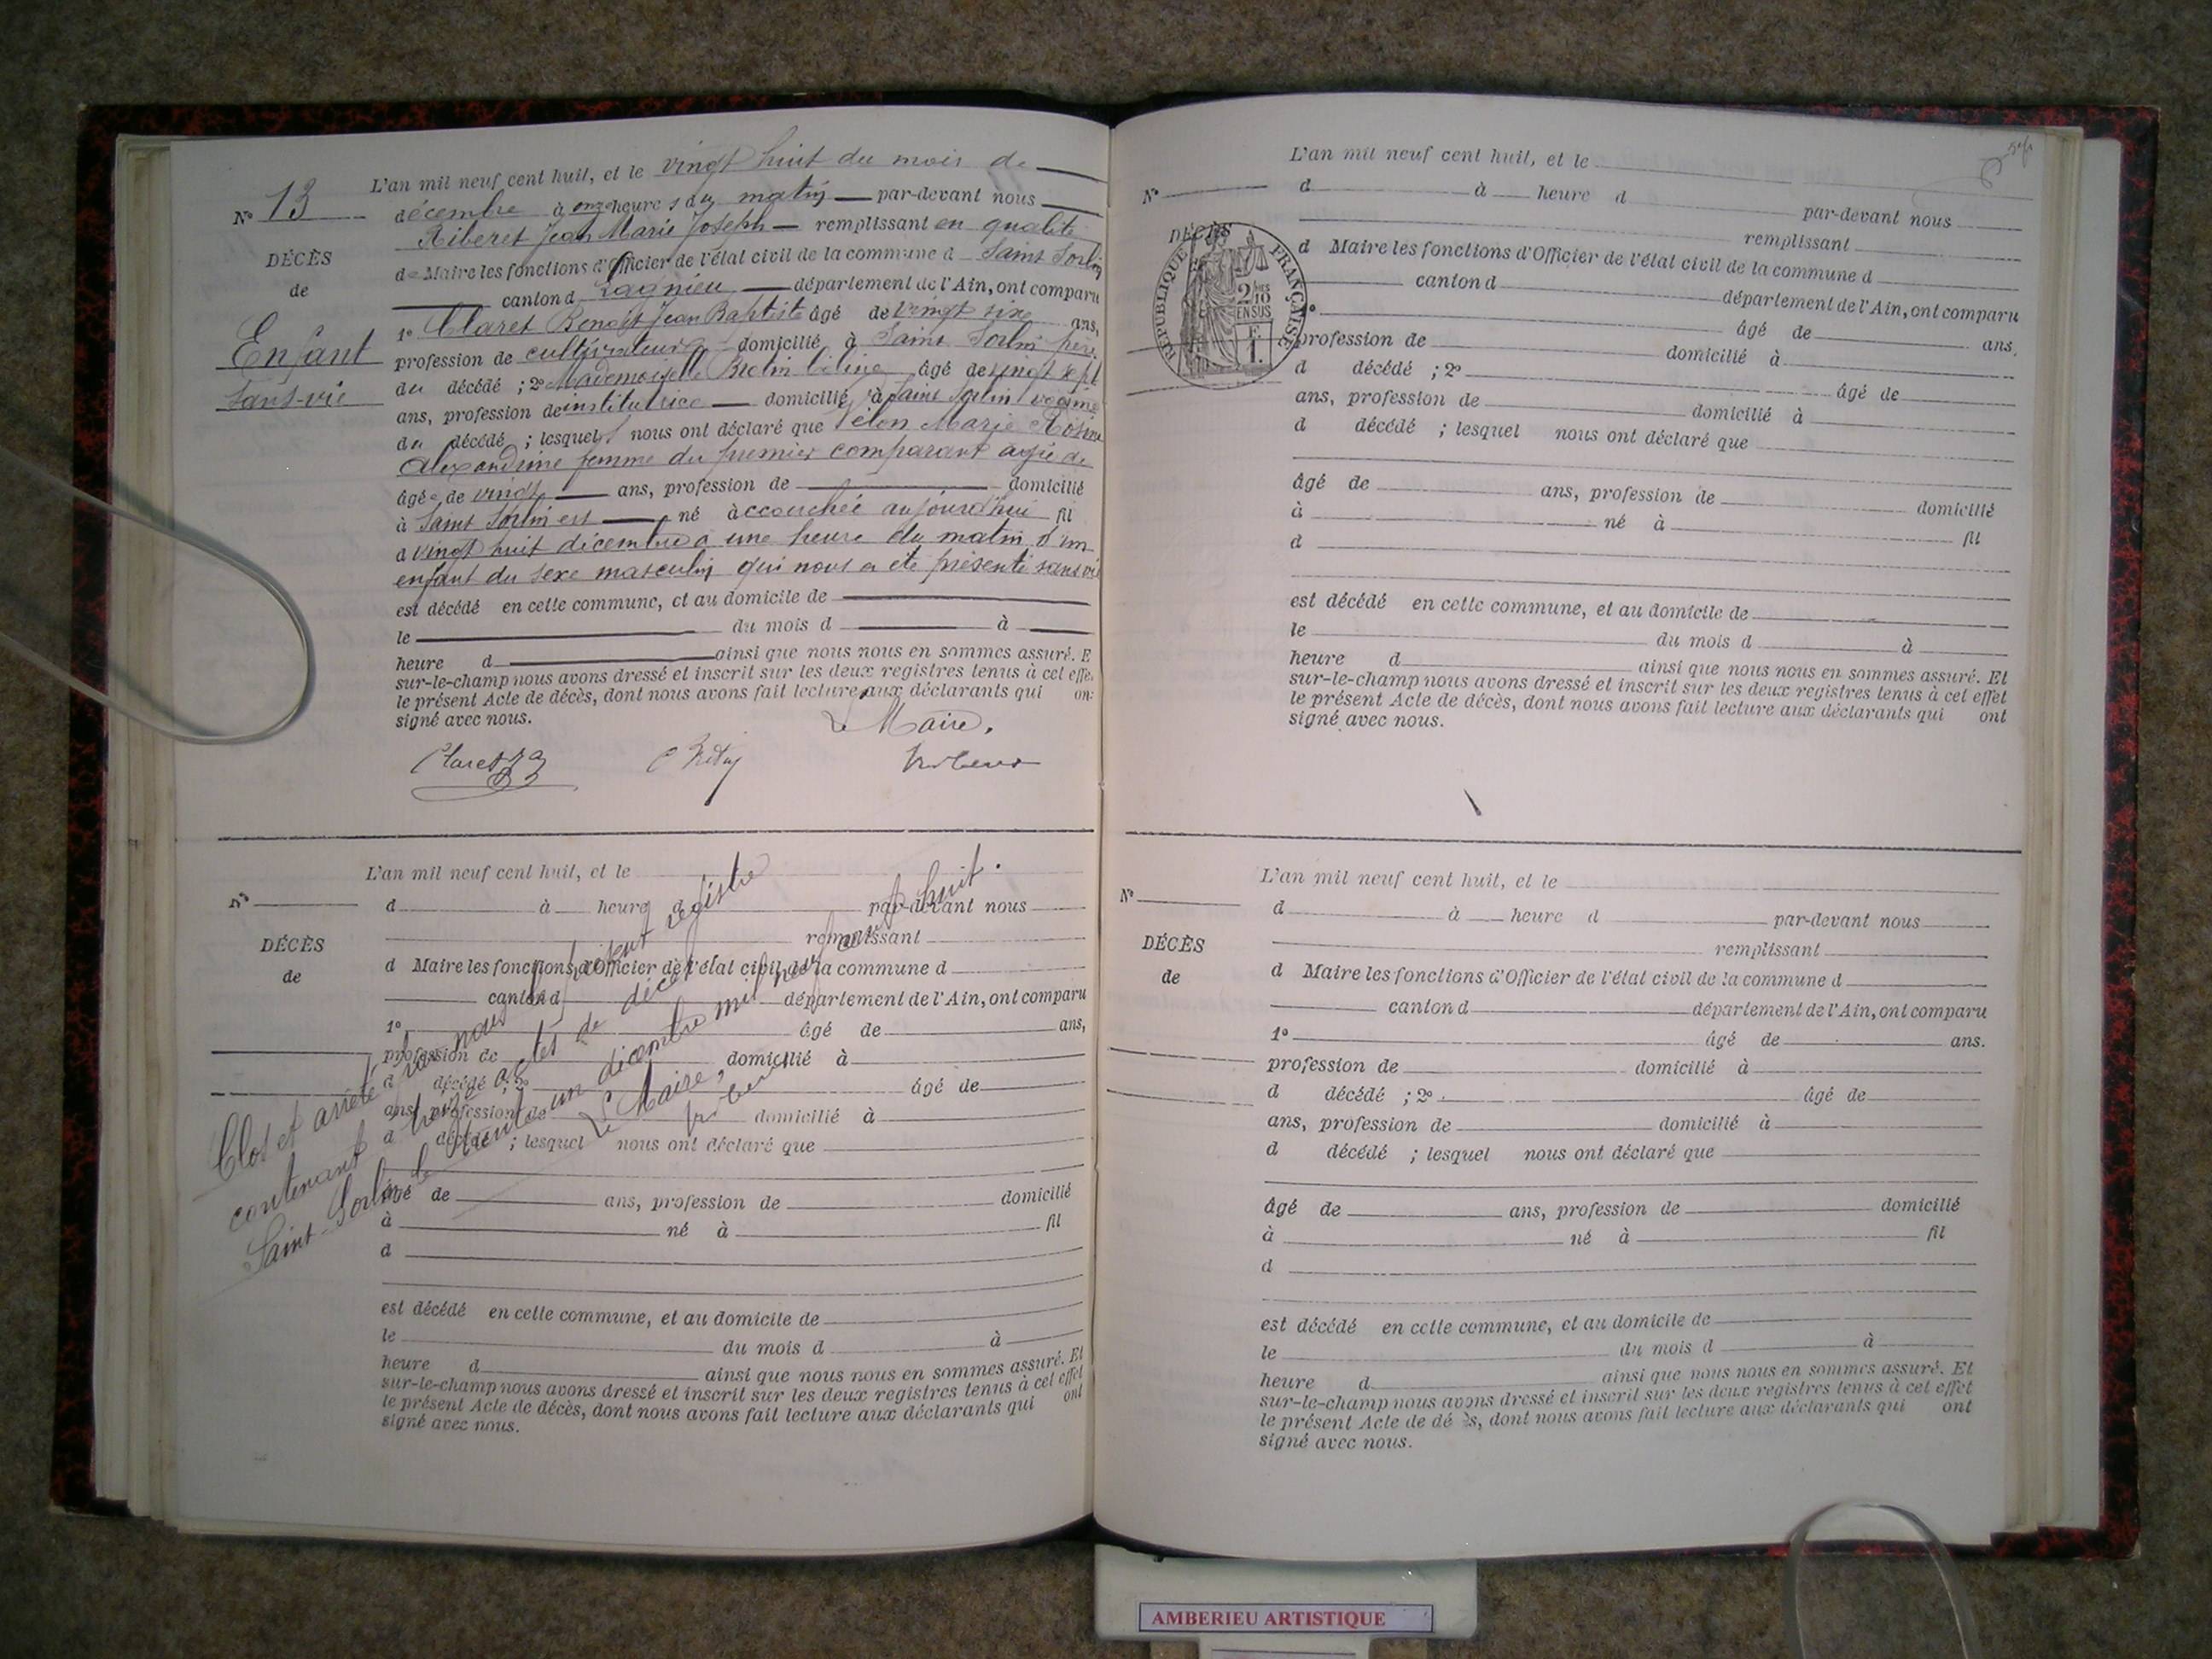 L'an mil neuf cent huit, et le vingt huit du mois de
N° 13
décembre à onze heures du matin par-devant nous
Riberet Jean Marie Joseph remplissant en qualité
DÉCÈS
de Maire les fonctions d'Officier de l'état civil de la commune d Saint Sorlin
de
canton d Lagnieu département de l'Ain, ont comparu
1° Claret Benoît Jean Baptiste âgé de vingt six ans,
Enfant
profession de cultivateur domicilié à Saint Sorlin père
Sans-vie
du décédé ; 2° Mademoiselle âgé de vingt sept
ans, profession de institutrice domicilié à Saint Sorlin voisine
du décédé ; lesquels nous ont déclaré que Marie
Alexandrine femme du premier comparant agée de
âgée de vingt ans, profession de domicilié
à Saint Sorlin est né à accouchée aujourd'hui fil
d vingt huit décembre à une heure du matin d'un
enfant du sexe masculin qui nous a été présenté sans vie
est décédé en cette commune, et au domicile de
le du mois d à
heure d ainsi que nous nous en sommes assuré. E
sur-le-champ nous avons dressé et inscrit sur les deux registres tenus à cet effe
le présent Acte de décès, dont nous avons fait lecture aux déclarants qui on
signé avec nous.
Le Maire,
Claret
L'an mil neuf cent huit, et le
N°
d à heure d par-devant nous
remplissant
DÉCÈS
d Maire les fonctions d'Officier de l'état civil de la commune d
de
canton d département de l'Ain, ont comparu
1° âgé de ans,
profession de domicilié à
d décédé ; 2° âgé de
ans, profession de domicilié à
d décédé ; lesquel nous ont déclaré que
âgé de ans, profession de domicilié
à né à fil
d
est décédé en cette commune, et au domicile de
le du mois d à
heure d ainsi que nous nous en sommes assuré. Et
sur-le-champ nous avons dressé et inscrit sur les deux registres tenus à cet effet
le présent Acte de décès, dont nous avons fait lecture aux déclarants qui ont
signé avec nous.
Clos et arrêté par nous le présent registre
contenant treize actes de décès
Saint-Sorlin le trente un décembre mil neuf cent huit.
Le Maire,
L'an mil neuf cent huit, et le
N°
d à heure d par-devant nous
remplissant
DÉCÈS
d Maire les fonctions d'Officier de l'état civil de la commune d
RÉPUBLIQUE FRANÇAISE
2/10 EN SUS
canton d département de l'Ain, ont comparu
âgé de ans.
profession de domicilié à
d décédé ; 2° âgé de
ans, profession de domicilié à
d décédé ; lesquel nous ont déclaré que
âgé de ans, profession de domicilié
à né à fil
d
est décédé en cette commune, et au domicile de
le du mois d à
heure d ainsi que nous nous en sommes assuré. Et
sur-le-champ nous avons dressé et inscrit sur les deux registres tenus à cet effet
le présent Acte de décès, dont nous avons fait lecture aux déclarants qui ont
signé avec nous.
L'an mil neuf cent huit, et le
N°
d à heure d par-devant nous
remplissant
DÉCÈS
d Maire les fonctions d'Officier de l'état civil de la commune d
de
canton d département de l'Ain, ont comparu
1° âgé de ans.
profession de domicilié à
d décédé ; 2° âgé de
ans, profession de domicilié à
d décédé ; lesquel nous ont déclaré que
âgé de ans, profession de domicilié
à né à fil
d
est décédé en cette commune, et au domicile de
le du mois d à
heure d ainsi que nous nous en sommes assuré. Et
sur-le-champ nous avons dressé et inscrit sur les deux registres tenus à cet effet
le présent Acte de dé ès, dont nous avons fait lecture aux déclarants qui ont
signé avec nous.
AMBERIEU ARTISTIQUE